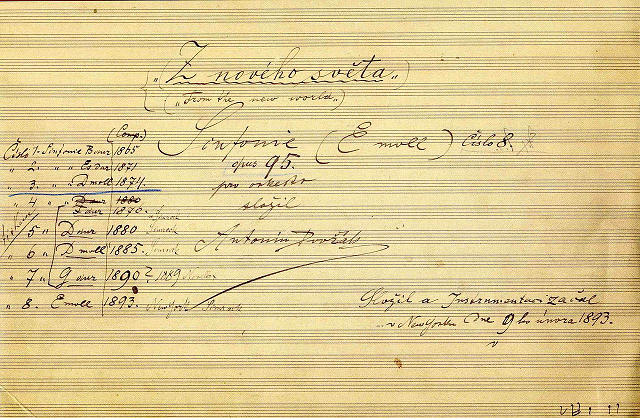 „Z nového světa„
(„From the new world„)
Sinfonie (E moll) Číslo 8.
opus 95.
pro orkestr
složil
Antonín Dvořák
(Comp.)
Číslo 1. Sinfonie B dur 1865
„ 2. „ Es dur 1871
„ 3. „ D moll 1874.
„ 4 „ D dur 1880
F dur 1890.
5 „ D dur 1880 Simrock
„ 6 „ D moll 1885. Simrock
„ 7 „ G dur 1890? 1889 Novello
„ 8. E moll 1893. New York Simrock
Složil a Instrumentaci začal
v New Yorku Dne 9ho února 1893.